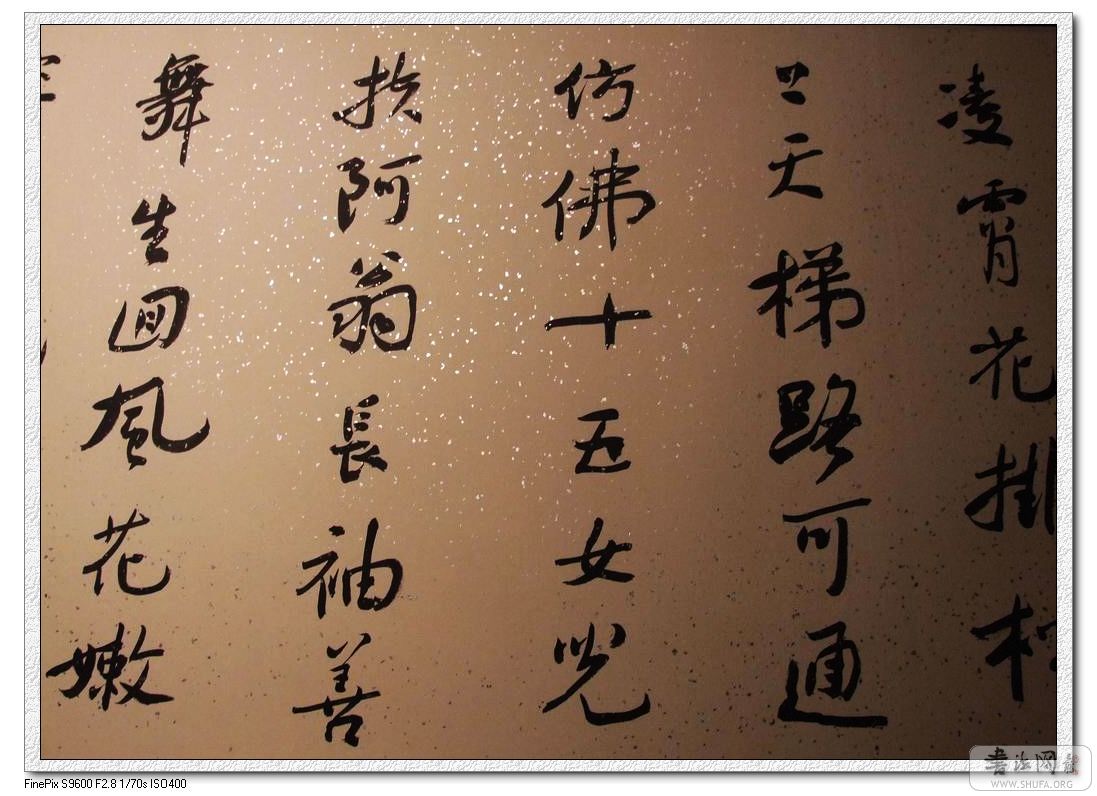 凌霄花掛
上天梯路可通
仿佛十五女兒
扶阿翁長袖善
舞生迴風花嫩
書法网
WWW.SHUFA.ORG
FinePix S9600 F2.8 1/70s ISO400